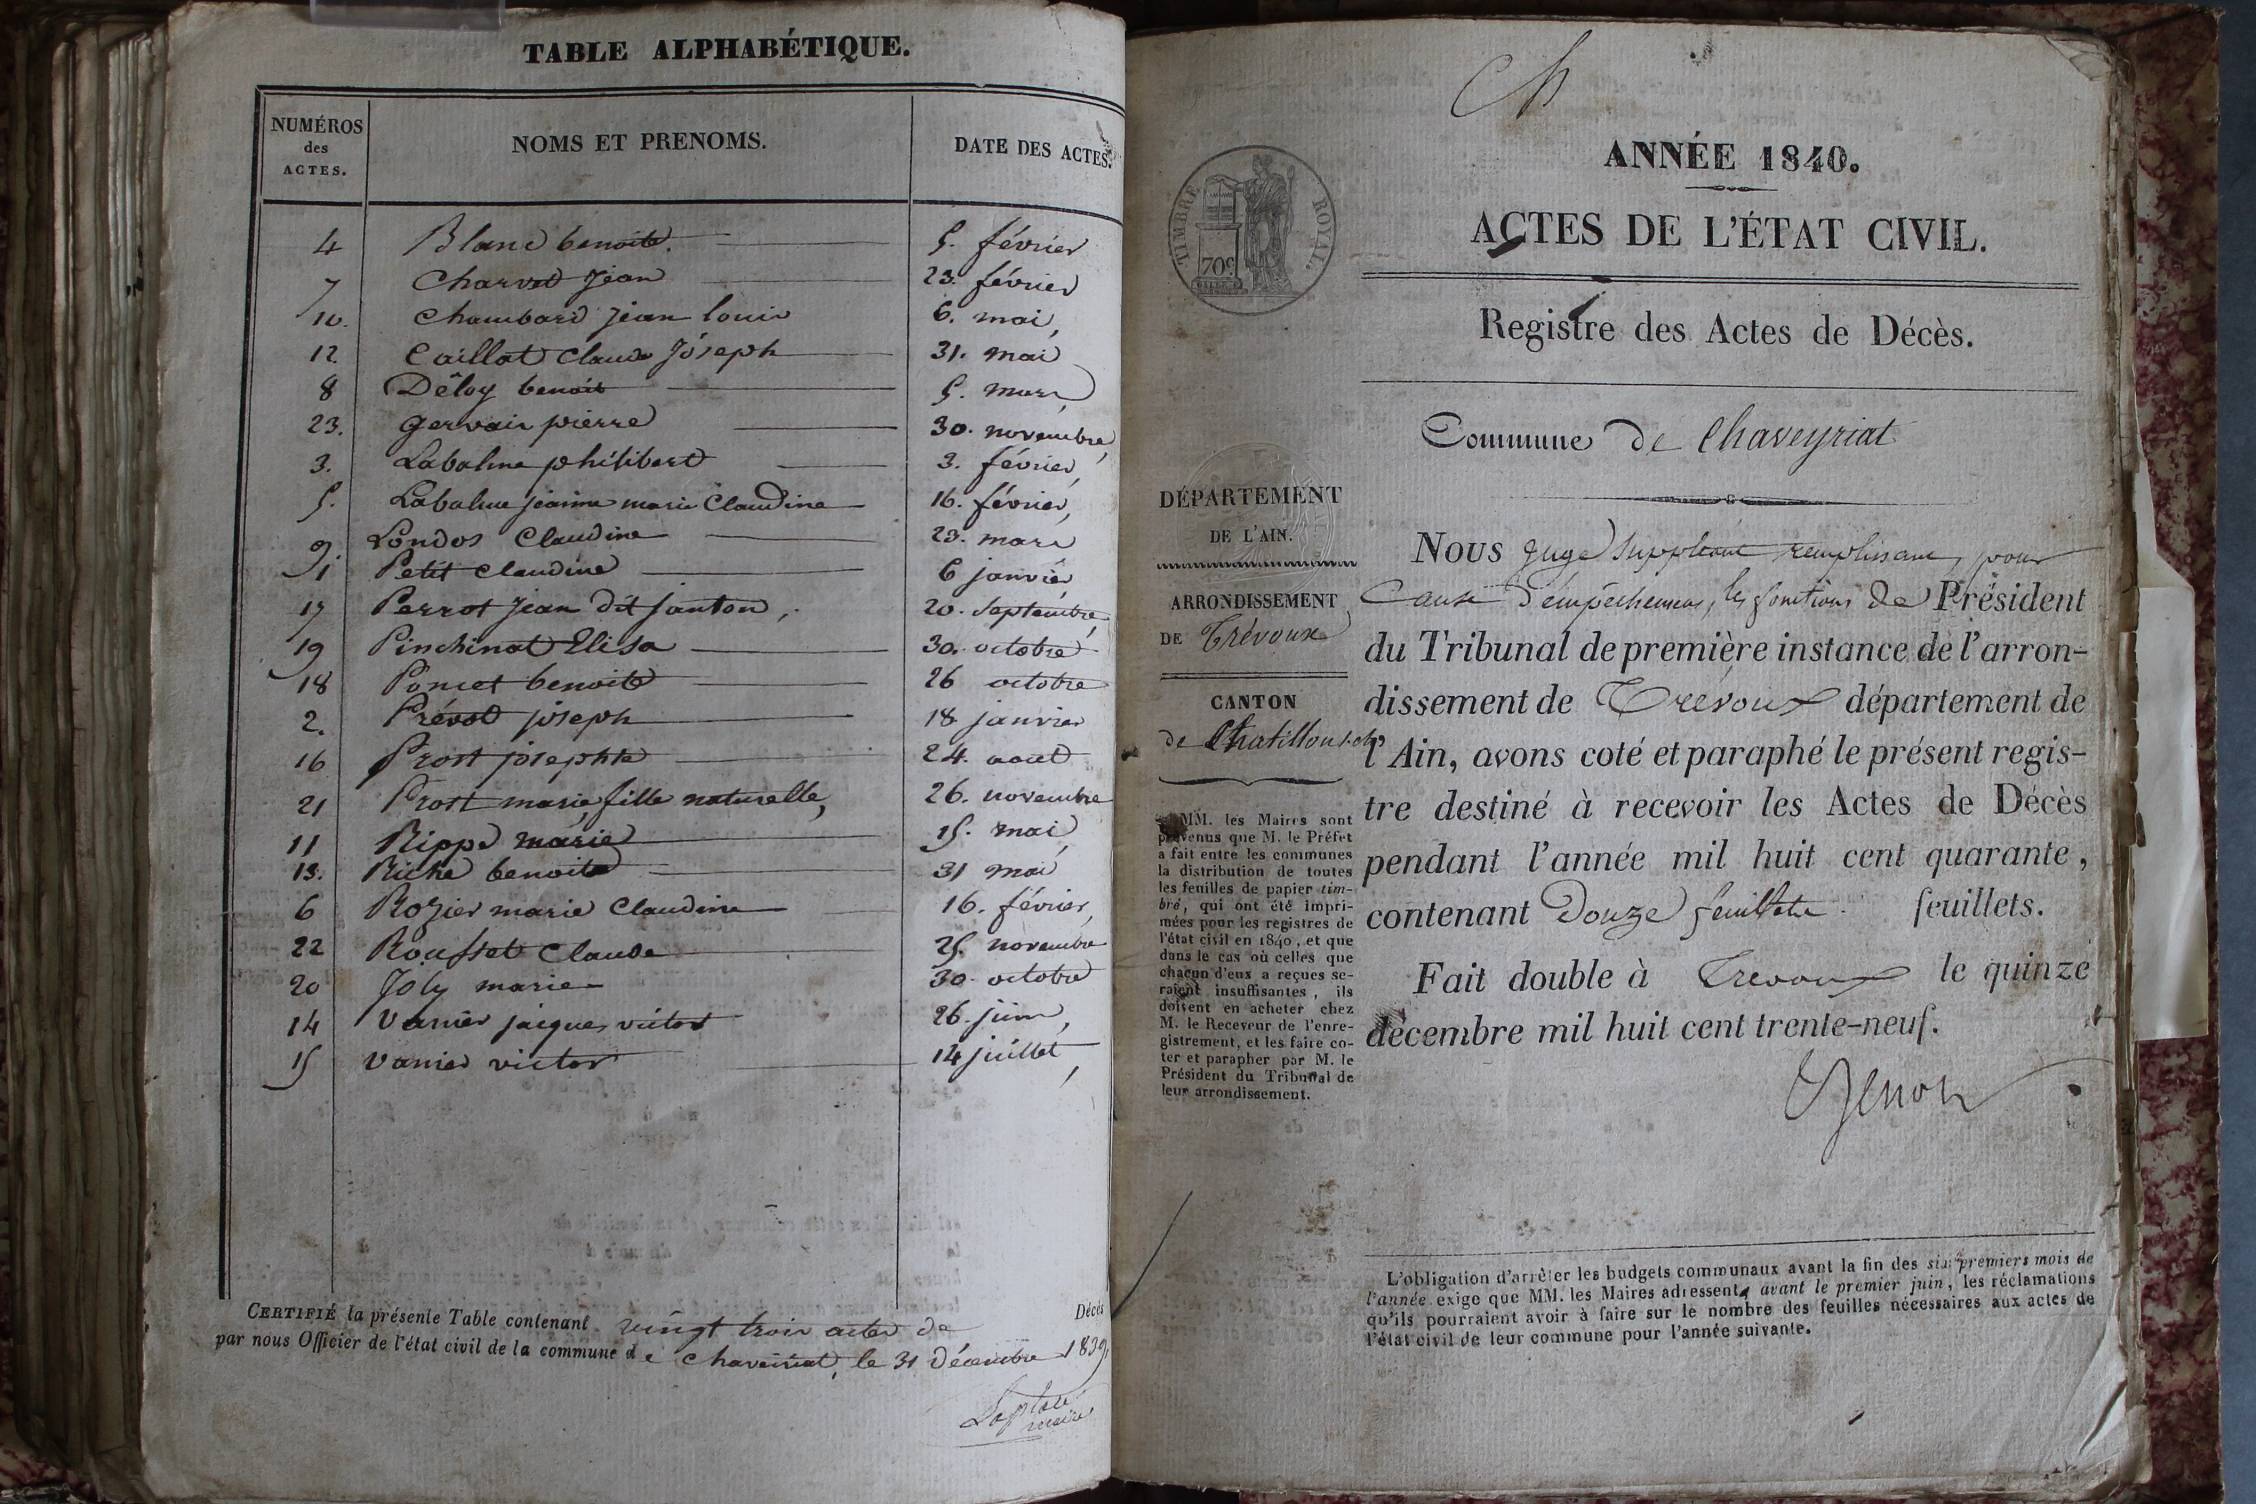 TABLE ALPHABÉTIQUE.
NUMÉROS des ACTES. NOMS ET PRENOMS. DATE DES ACTES.
4 Blanc benoite. 5. février
7 Charvet Jean 23. février
10. Chambard jean louis 6. mai,
12 Caillat Claude Jóseph 31. mai
8 Déloy benoit 5. mars
23. gervais pierre 30. novembre,
3. Labalme philibert 3. février,
5. Labalme jeanne marie Claudine 16. février,
9. Londos Claudine 23. mars
1 Petit Claudine 6 janvié
17 Perrot Jean dit janton, 20. Septembre,
19 Pinchinat Elisa 30. octobre
18 Poncet benoite 26 octobre
2. Prévot joseph 18 janvier
16 Prost josephte 24. aout
21 Prost marie, fille naturelle, 26. novembre
11 Rippe marie 15. mai,
13. Riche benoite 31 mai
6 Rozier marie Claudine 16. février,
22 Rousset Claude 25. novembre
20 Joly marie 30. octobre
14 Vanier jacques victor 26. juin,
15 Vanier victor 14 juillet,
CERTIFIÉ la présente Table contenant vingt trois actes de Décès
par nous Officier de l'état civil de la commune de chaveiriat, le 31 Décembre 1839,
maire
Ch
ANNÉE 1840.
TIMBRE ROYAL.
70c
ACTES DE L'ÉTAT CIVIL.
Registre des Actes de Décès.
Commune de Chaveyriat
DÉPARTEMENT
DE L'AIN.
ARRONDISSEMENT
DE Trévoux
CANTON
de Chatillon s. ch.
MM. les Maires sont
prévenus que M. le Préfet
a fait entre les communes
la distribution de toutes
les feuilles de papier tim-
bré, qui ont été impri-
mées pour les registres de
l'état civil en 1840, et que
dans le cas où celles que
chacun d'eux a reçues se-
raient insuffisantes, ils
doivent en acheter chez
M. le Receveur de l'enre-
gistrement, et les faire co-
ter et parapher par M. le
Président du Tribunal de
leur arrondissement.
NOUS juge Suppléant remplissant, pour
Cause d'empêchement, les fonctions de Président
du Tribunal de première instance de l'arron-
dissement de Trévoux département de
l'Ain, avons coté et paraphé le présent regis-
tre destiné à recevoir les Actes de Décès
pendant l'année mil huit cent quarante,
contenant Douze feuillets feuillets.
Fait double à Trevoux le quinze
décembre mil huit cent trente-neuf.
L'obligation d'arrêter les budgets communaux avant la fin des six premiers mois de
l'année exige que MM. les Maires adressent, avant le premier juin, les réclamations
qu'ils pourraient avoir à faire sur le nombre des feuilles nécessaires aux actes de
l'état civil de leur commune pour l'année suivante.